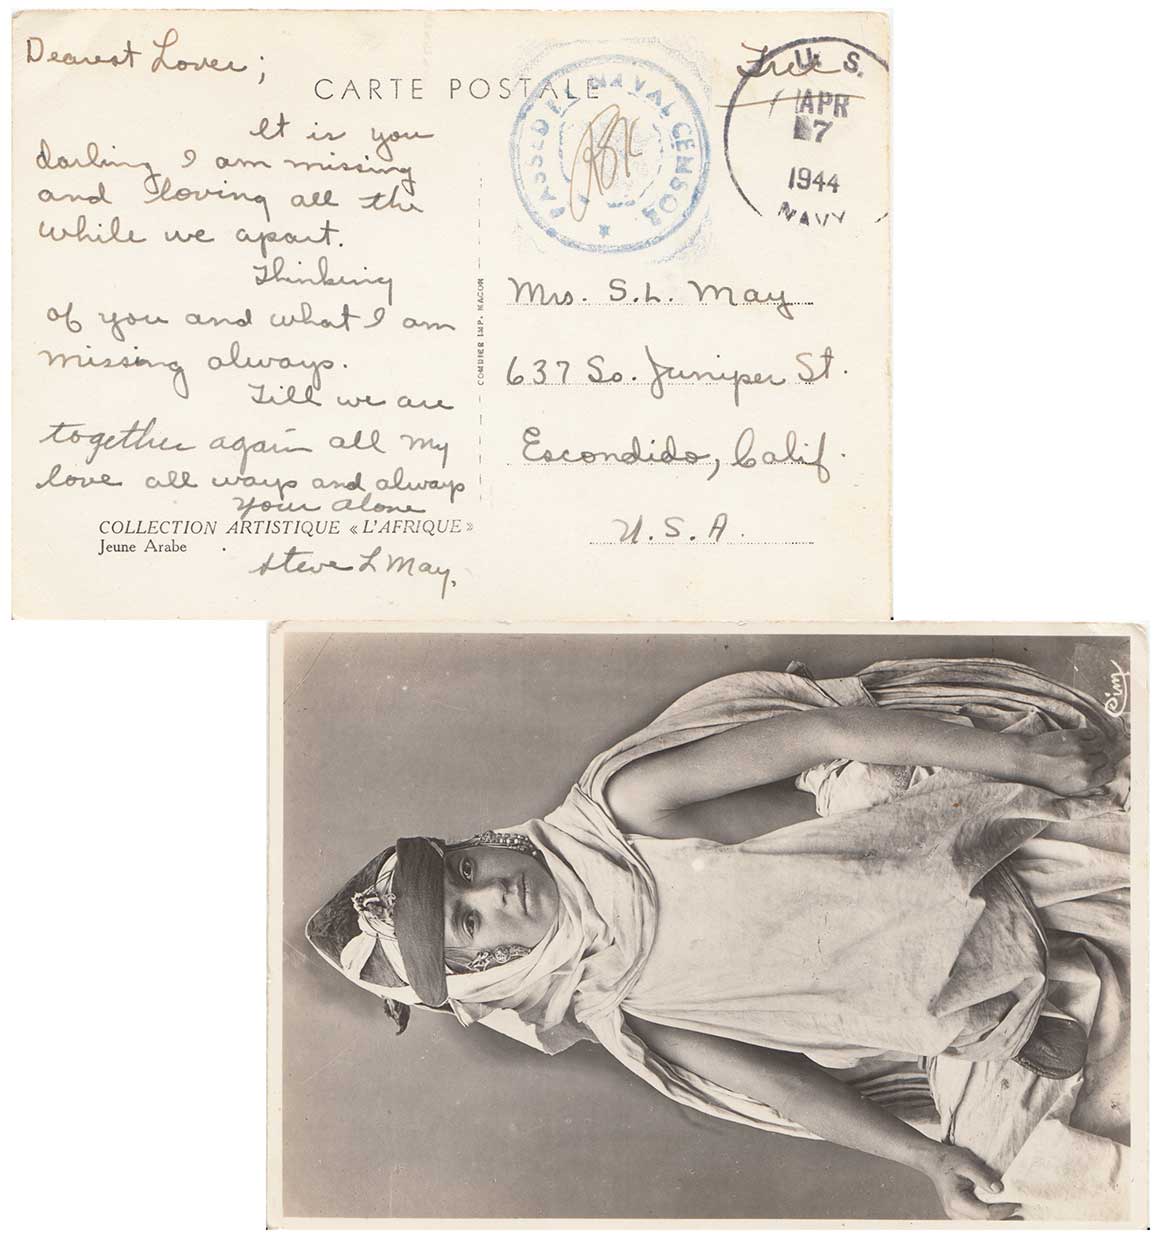 Dearest Lover;
CARTE POSTALE
It is you
darling I am missing
and loving all the
while we apart.
Thinking
of you and what I am
missing always.
Till we are
together again all my
love all ways and always
Your alone
Steve L May.
COLLECTION ARTISTIQUE « L'AFRIQUE »
Jeune Arabe
COMBIER IMP. MACON
PASSED BY NAVAL CENSOR
Free
U. S.
APR
7
1944
NAVY
Mrs. S.L. May
637 So. Juniper St.
Escondido, Calif.
U.S.A.
Cim